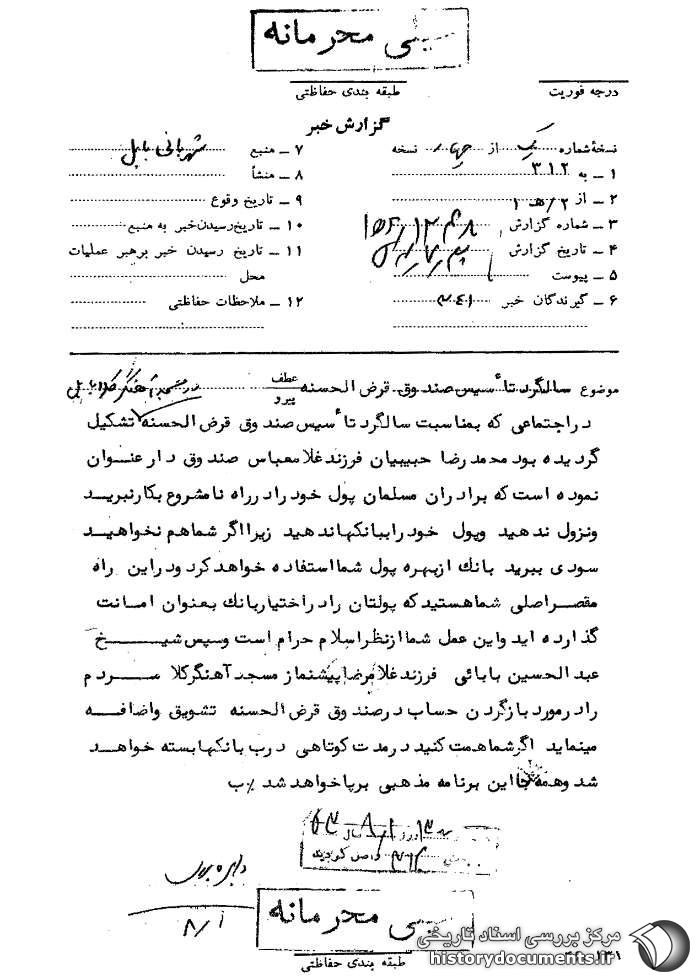 خیلی محرمانه
طبقه بندی حفاظتی
درجه فوریت
گزارش خبر
نسخهٔ شماره یک از چهار نسخه
۱ ــ به ۳۱۲
۲ ــ از ۲/ه‍ ۱
۳ ــ شماره گزارش
۴ ــ تاریخ گزارش
۵ ــ پیوست
۶ ــ گیرندگان خبر ۳۴۱
۷ ــ منبع شهربانی بابل
۸ ــ منشأ
۹ ــ تاریخ وقوع
۱۰ ــ تاریخ رسیدن خبر به منبع
۱۱ ــ تاریخ رسیدن خبر برهبر عملیات
محل
۱۲ ــ ملاحظات حفاظتی
موضوع سالگرد تأسیس صندوق قرض الحسنه عطف پیرو
در اجتماعی که بمناسبت سالگرد تأسیس صندوق قرض الحسنه تشکیل
گردیده بود محمد رضا حبیبیان فرزند غلامعباس صندوق دار عنوان
نموده است که برادران مسلمان پول خود را در راه نامشروع بکار نبرید
و نزول ندهید و پول خود را ببانکها ندهید زیرا اگر شما هم نخواهید
سودی ببرید بانك از بهره پول شما استفاده خواهد کرد و در این راه
مقصر اصلی شما هستید که پولتان را در اختیار بانك بعنوان امانت
گذارده اید و این عمل شما از نظر اسلام حرام است و سپس شیخ
عبد الحسین بابائی فرزند غلامرضا پیشنماز مسجد آهنگرکلا مردم
را در مورد باز گردن حساب در صندوق قرض الحسنه تشویق و اضافه
مینماید اگر شما همت کنید در مدت کوتاهی درب بانکها بسته خواهد
شد و همه جا این برنامه مذهبی برپا خواهد شد ٪ب
روز سال
واصل گردید
۸/۱
خیلی محرمانه
طبقه بندی حفاظتی
مرکز بررسی اسناد تاریخی
historydocuments.ir